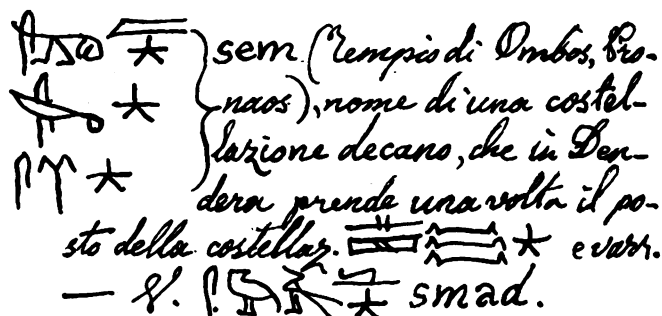 sem (Tempio di Ombos, Pro-
naos), nome di una costel-
lazione decano, che in Den-
dera prende una volta il po-
sto della costellaz. e varr.
— V. smad.